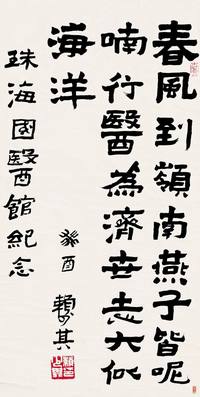 春風到嶺南燕子皆呢
喃行醫為濟世志大似
海洋
癸酉 賴少其
珠海國醫館紀念